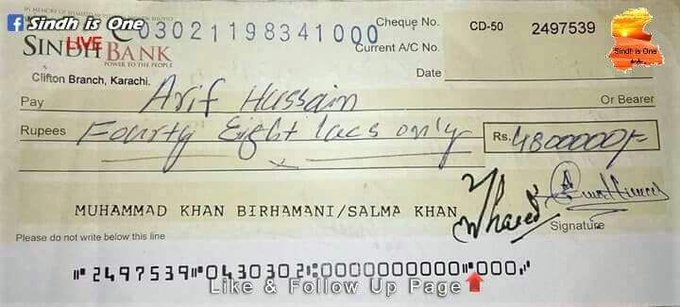 Sindh is One
Cheque No. CD-50 2497530
03021198341000
LIVE
SINDH BANK
POWER TO THE PEOPLE
Current A/C No.
Sindh is One
Clifton Branch, Karachi.
Date
Pay Arif Hussain Or Bearer
Rupees Fourty Eight Lacs only Rs. 4800000/-
MUHAMMAD KHAN BIRHAMANI/SALMA KHAN
Signature
Please do not write below this line
⑈2497539⑈0430302⑆0000000000000⑈000⑈
Like & Follow Up Page